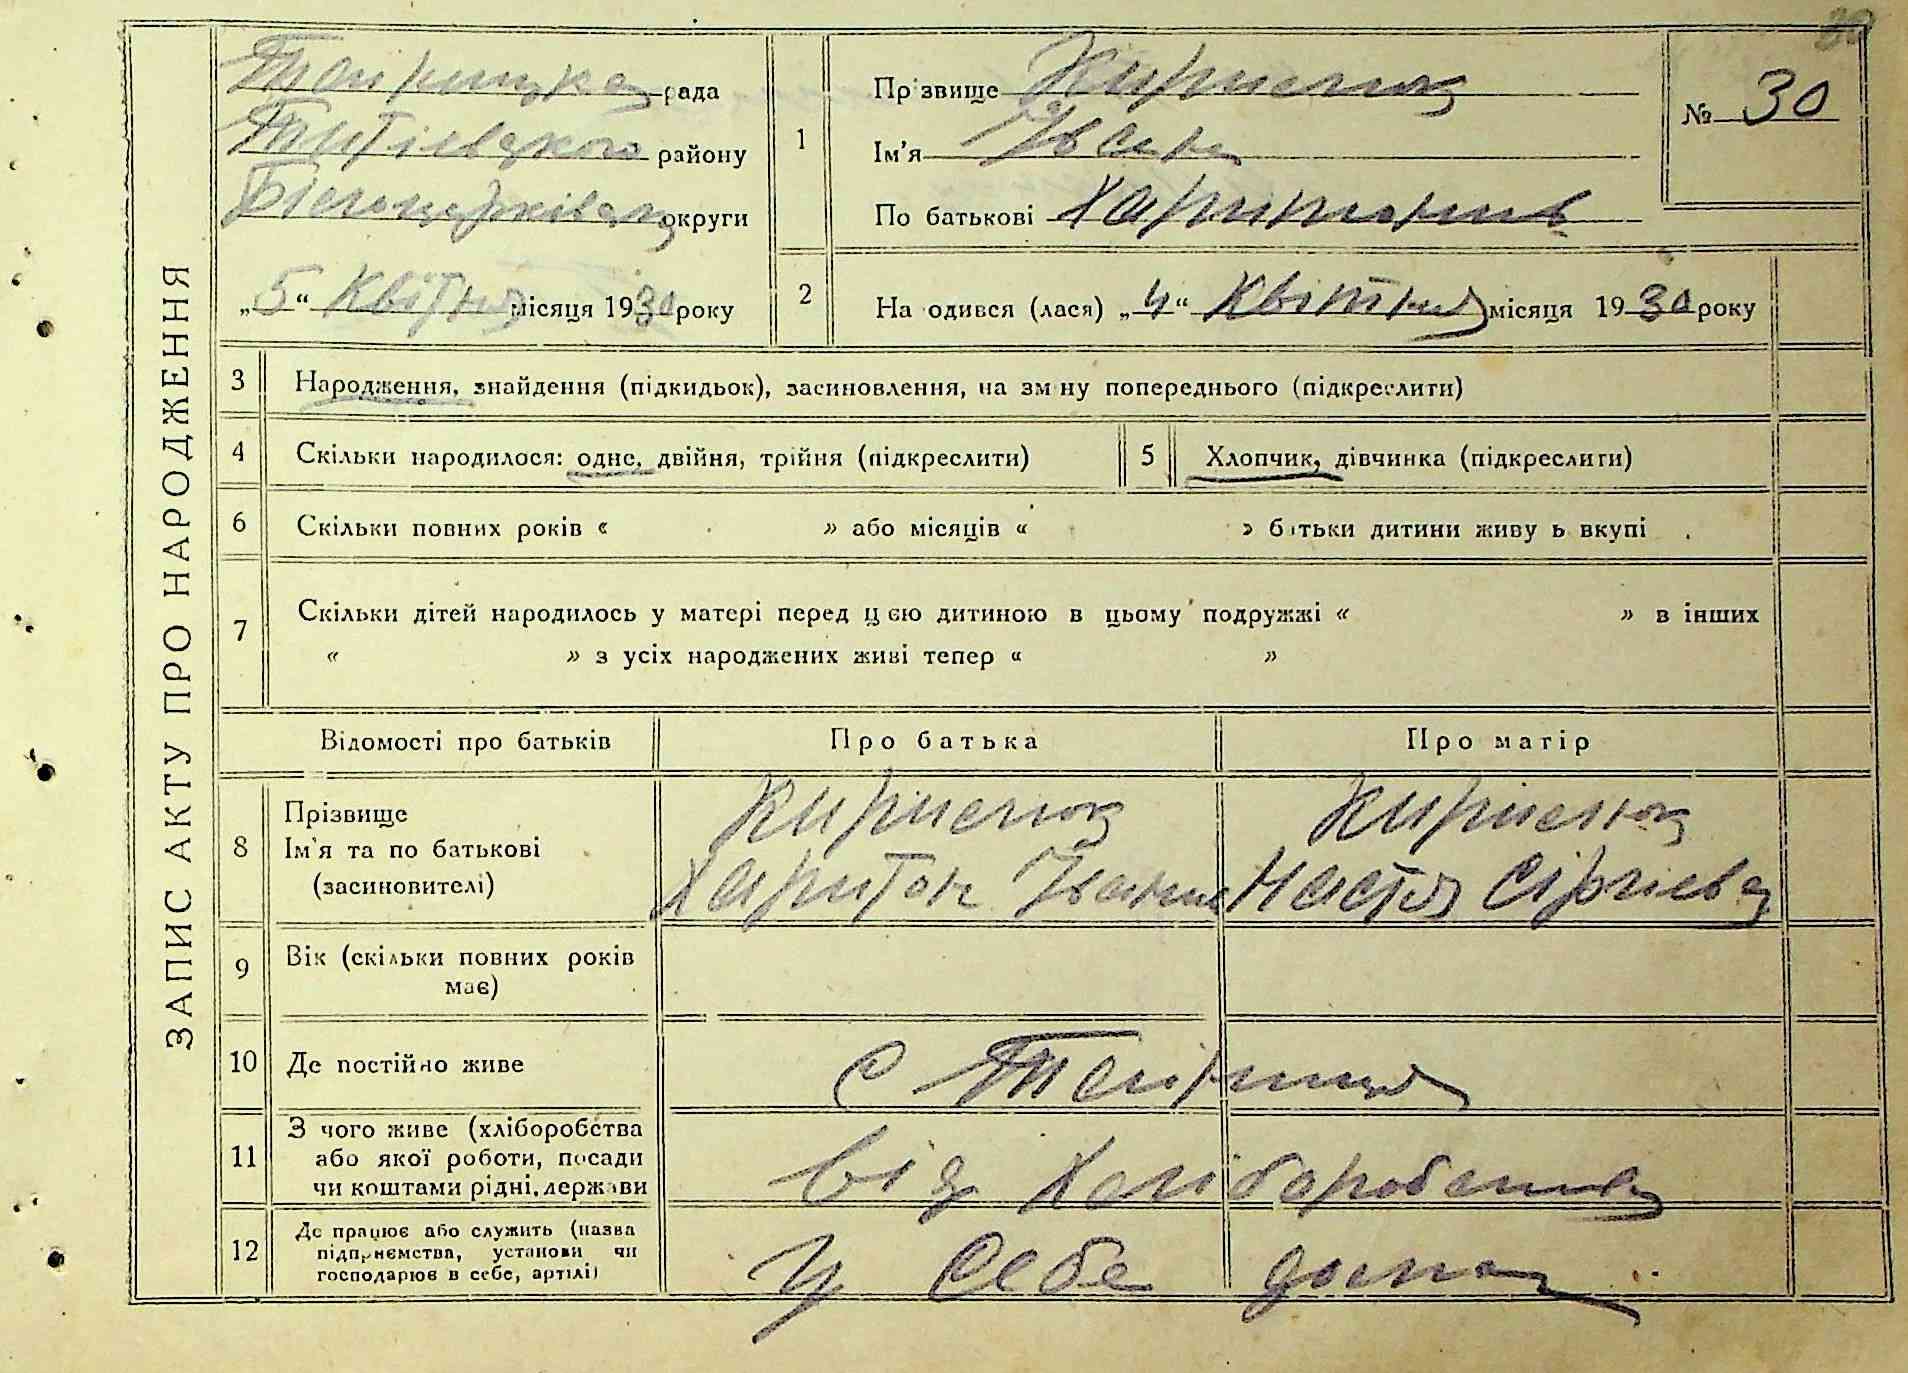 ЗАПИС АКТУ ПРО НАРОДЖЕННЯ
рада
Тетіевського району
Білоцерківськ округи
„5“ Квітня місяця 1930 року
1
Прізвище
Ім'я Іван
По батькові Харитонів
№ 30
30
2
На одився (лася) „4“ Квітня місяця 1930 року
3
Народження, знайдення (підкидьок), засиновлення, на зм ну попереднього (підкреслити)
4
Скільки народилося: одне, двійня, трійня (підкреслити)
5
Хлопчик, дівчинка (підкреслити)
6
Скільки повних років « » або місяців « » батьки дитини живу ь вкупі
7
Скільки дітей народилось у матері перед цією дитиною в цьому подружжі « » в інших
« » з усіх народжених живі тепер « »
Відомості про батьків
Про батька
Про матір
8
Прізвище
Ім'я та по батькові
(засиновителі)
Харитон Іванов
Настя Сіргієва
9
Вік (скільки повних років
має)
10
Де постійно живе
с
11
З чого живе (хліборобства
або якої роботи, посади
чи коштами рідні, держави
від
12
Де працює або служить (назва
підприємства, установи чи
господарює в себе, артілі)
У себе дома